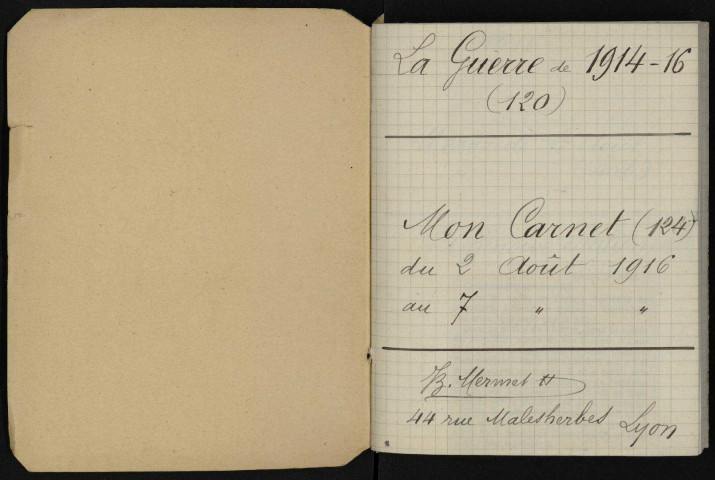 La Guerre de 1914-16
(120)
Mon Carnet (124)
du 2 Août 1916
au 7 " "
B. Mermet
44 rue Malesherbes Lyon